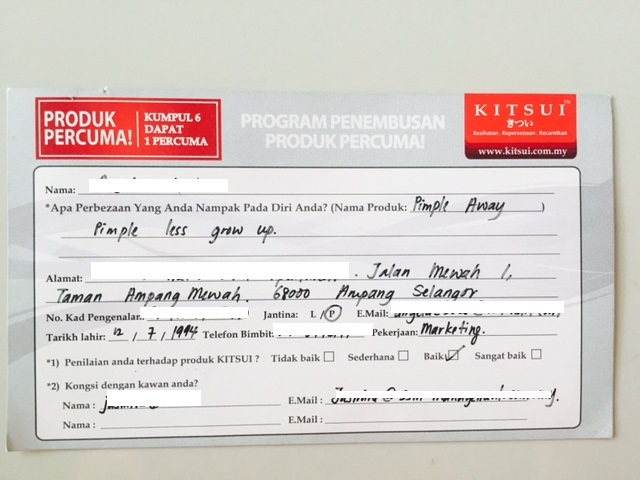 PRODUK PERCUMA!
KUMPUL 6 DAPAT 1 PERCUMA
PROGRAM PENEMBUSAN PRODUK PERCUMA!
KITSUI™
きつい
Kesihatan . Kepercayaan . Kecantikan
www.kitsui.com.my
Nama:
*Apa Perbezaan Yang Anda Nampak Pada Diri Anda? (Nama Produk: Pimple Away )
Pimple less grow up.
Alamat: . Jalan Mewah 1,
Taman Ampang Mewah. 68000 Ampang Selangor
No. Kad Pengenalan: Jantina: L / P E.Mail:
Tarikh lahir: 12 / 7 / 1994 Telefon Bimbit: Pekerjaan: Marketing.
*1) Penilaian anda terhadap produk KITSUI ? Tidak baik Sederhana Baik Sangat baik
*2) Kongsi dengan kawan anda?
Nama : E.Mail :
Nama : E.Mail :